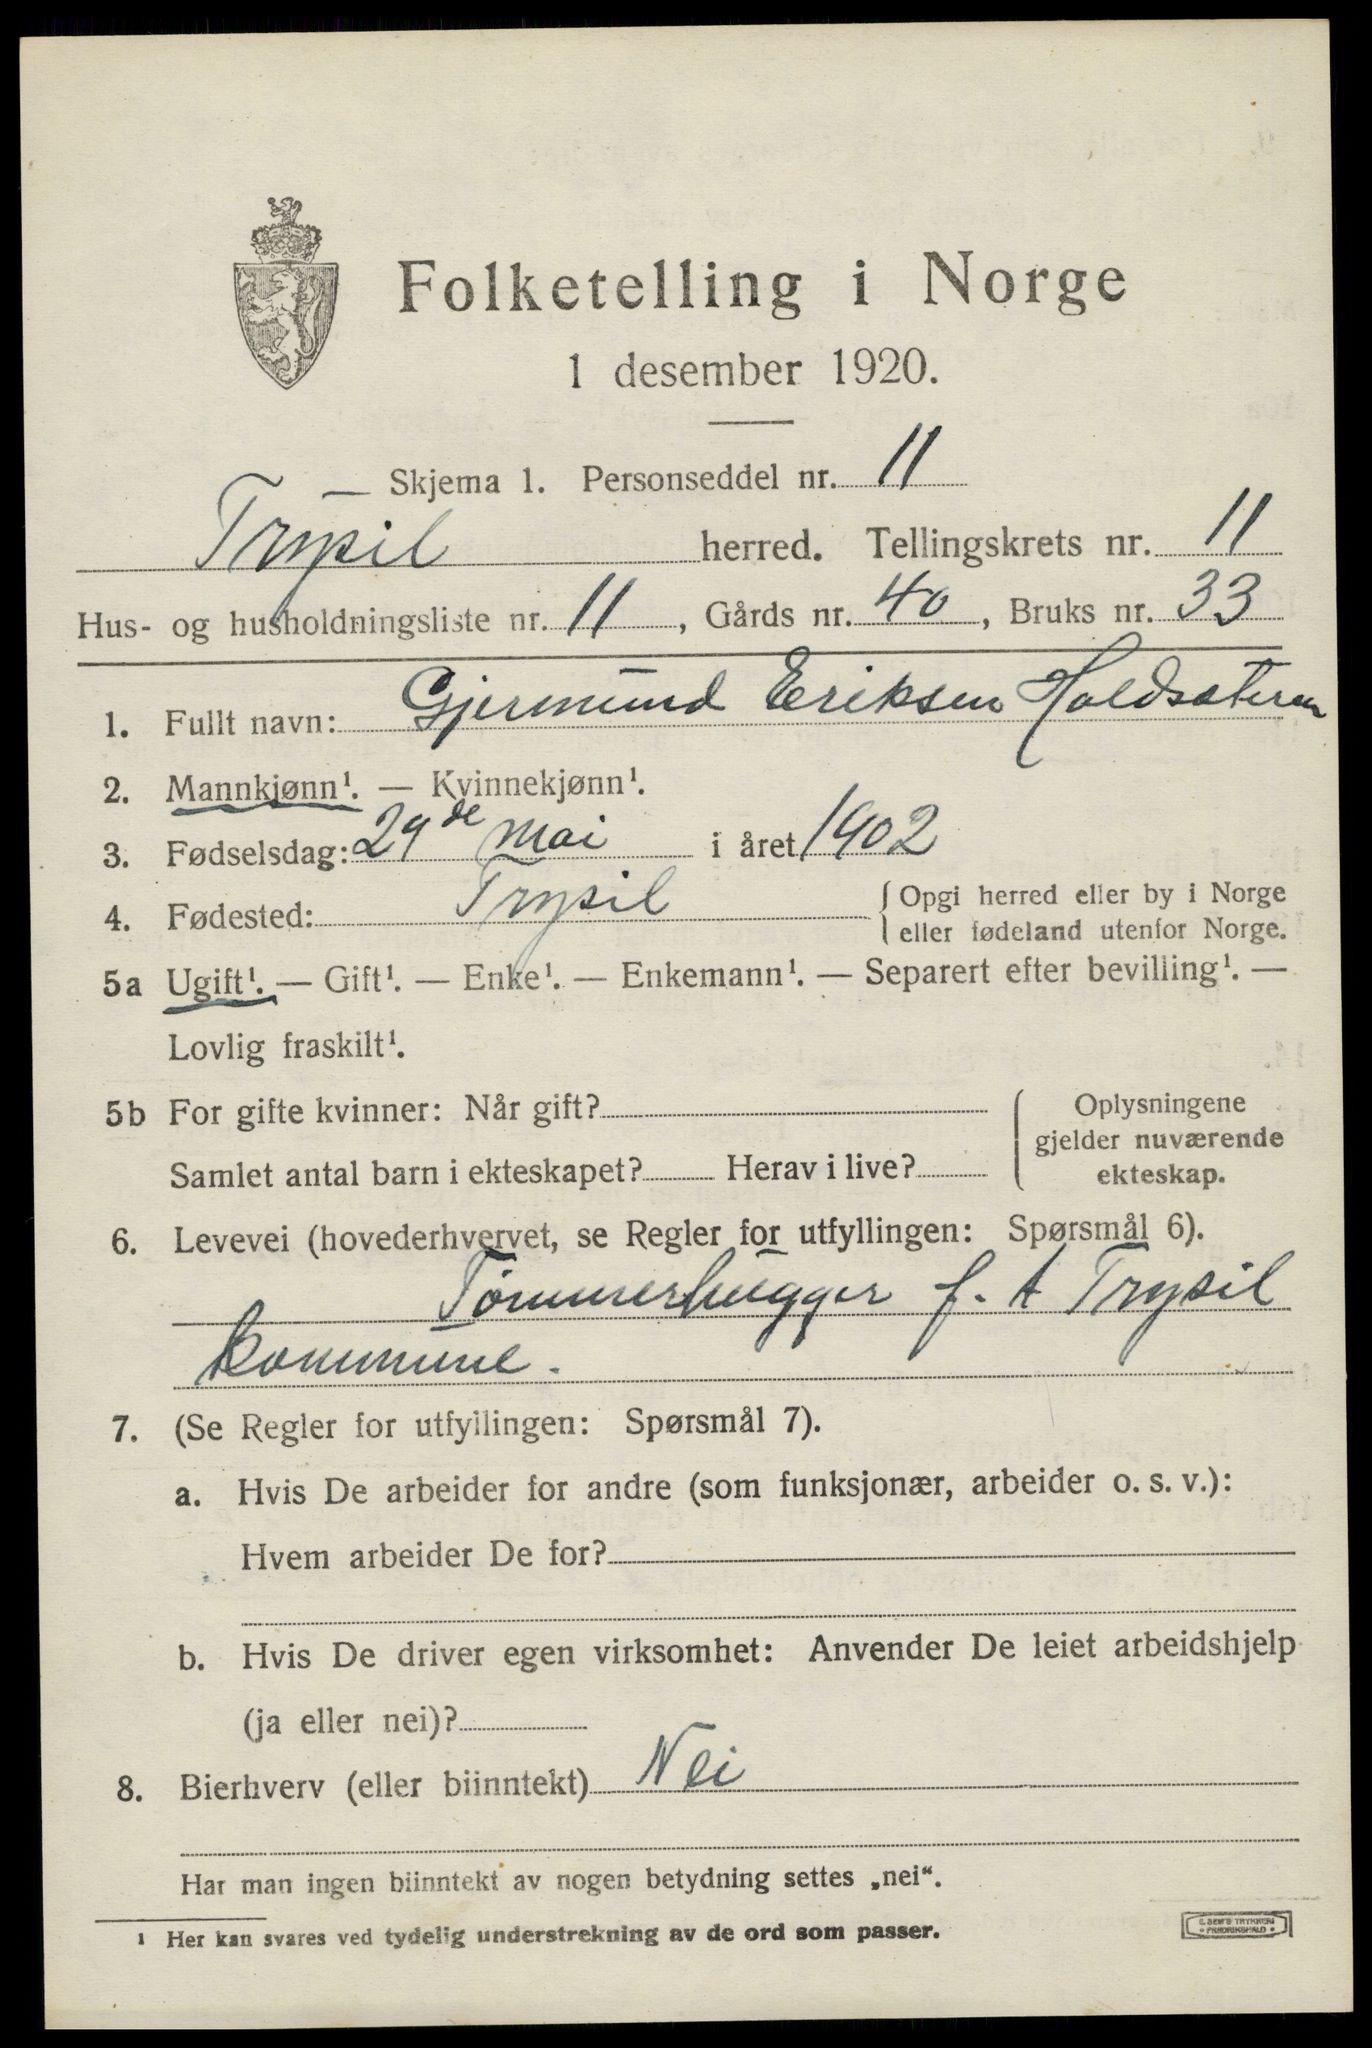 Folketelling i Norge
1 desember 1920.
Skjema 1. Personseddel nr. 11
Trysil herred. Tellingskrets nr. 11
Hus- og husholdningsliste nr. 11, Gårds nr. 40, Bruks nr. 33
1. Fullt navn: Gjermund Eriksen Holdsæteren
2. Mannkjønn¹. — Kvinnekjønn¹.
3. Fødselsdag: 29de mai i året 1902
4. Fødested: Trysil { Opgi herred eller by i Norge
eller fødeland utenfor Norge.
5a Ugift¹. — Gift¹. — Enke¹. — Enkemann¹. — Separert efter bevilling¹. —
Lovlig fraskilt¹.
5b For gifte kvinner: Når gift? { Oplysningene
gjelder nuværende
Samlet antal barn i ekteskapet? Herav i live? ekteskap.
6. Levevei (hovederhvervet, se Regler for utfyllingen: Spørsmål 6).
Tømmerhugger f. A Trysil
kommune.
7. (Se Regler for utfyllingen: Spørsmål 7).
a. Hvis De arbeider for andre (som funksjonær, arbeider o. s. v.):
Hvem arbeider De for?
b. Hvis De driver egen virksomhet: Anvender De leiet arbeidshjelp
(ja eller nei)?
8. Bierhverv (eller biinntekt) Nei
Har man ingen biinntekt av nogen betydning settes „nei“.
¹ Her kan svares ved tydelig understrekning av de ord som passer.
E. SEM'S TRYKKERI
FREDRIKSHALD